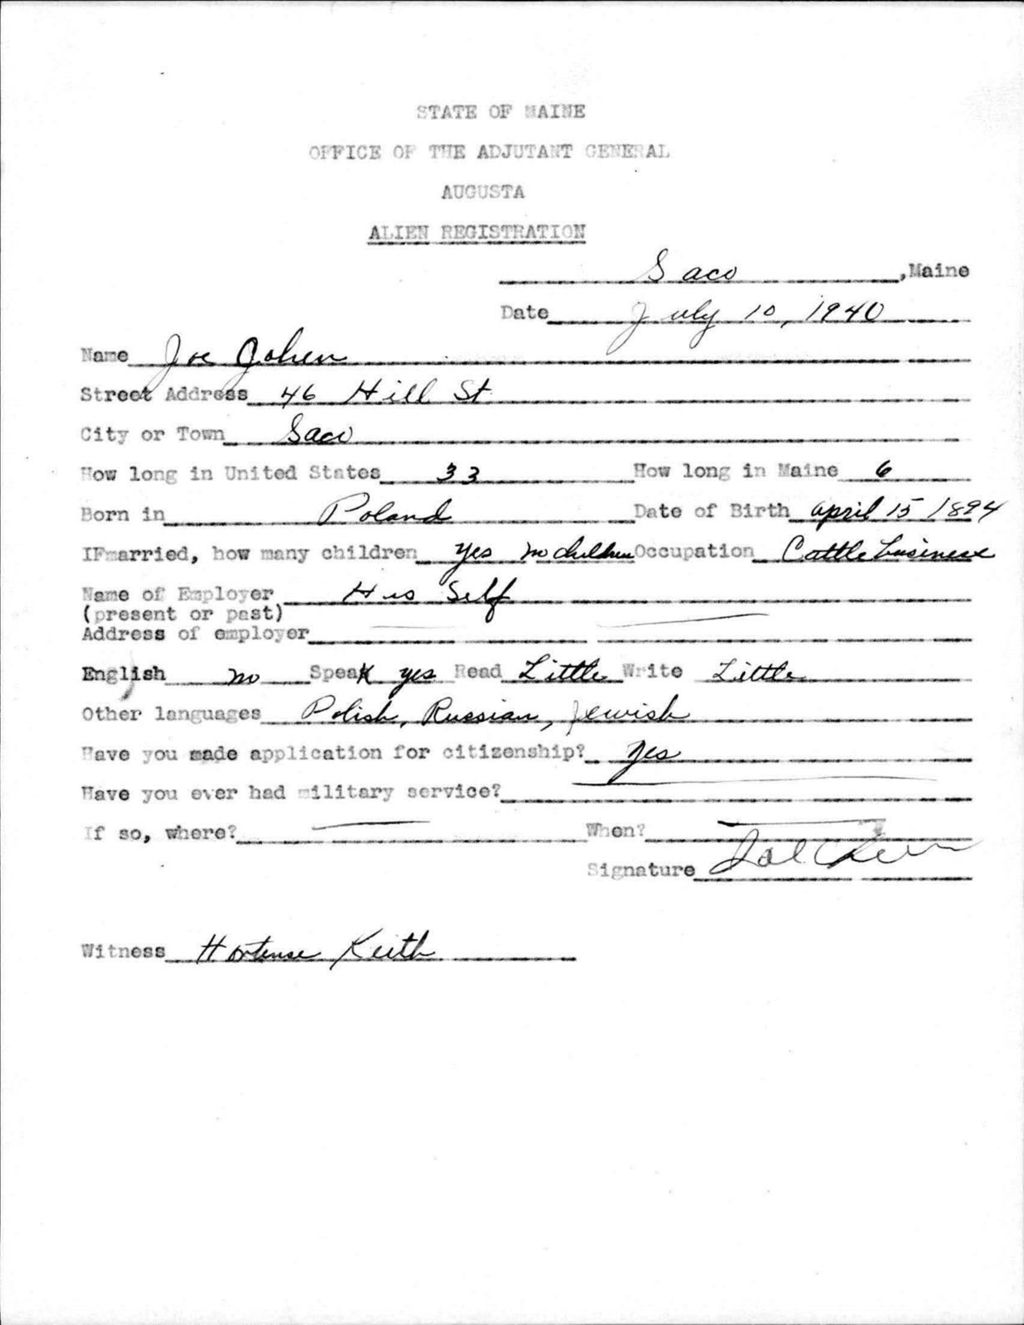 STATE OF MAINE
OFFICE OF THE ADJUTANT GENERAL
AUGUSTA
ALIEN REGISTRATION
Saco, Maine
Date July 10, 1940
Name Joe Cohen
Street Address 46 Hill St
City or Town Saco
How long in United States 33 How long in Maine 6
Born in Poland Date of Birth April 15 1894
IF married, how many children yes no children Occupation Cattle business
Name of Employer His Self
(present or past)
Address of employer
English no Speak yes Read Little Write Little
Other languages Polish, Russian, Jewish
Have you made application for citizenship? Yes
Have you ever had military service?
If so, where? When?
Signature
Witness Hortense Keith